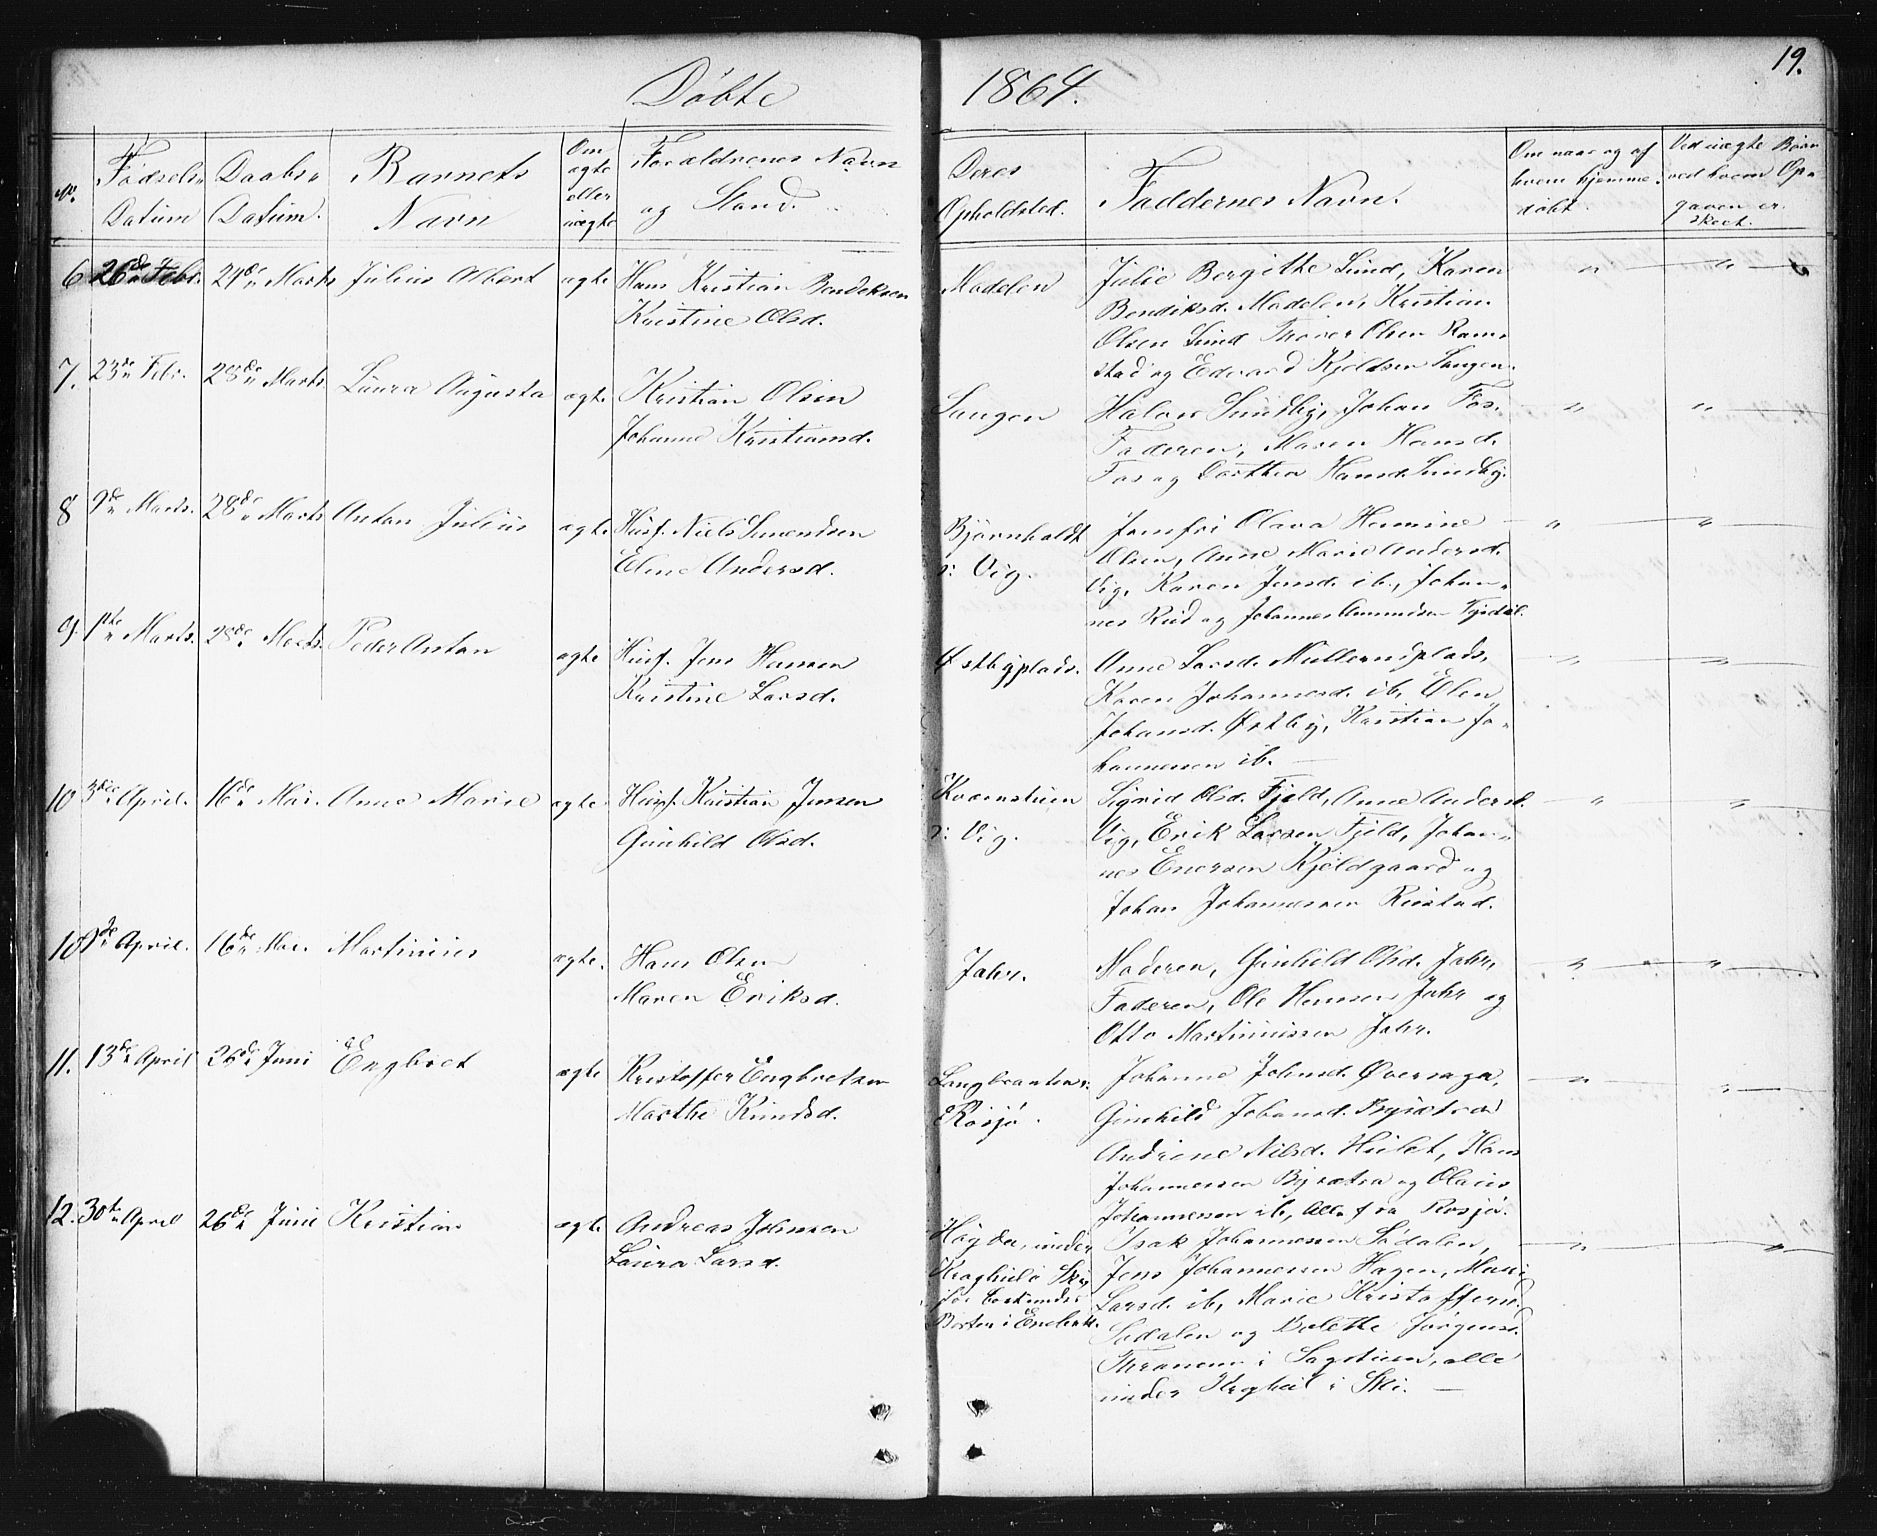 19.
Døbte 1864.
No. Fødsels Datum
Daabs Datum.
Barnets Navn
Om ægte eller uægte
Forældrenes Navn og Stand.
Deres Opholdsted.
Faddernes Navn.
Om naar og af hvem hjemme- døbt.
Ved uægte Børn ved hvem Op- gaven er skeet.
6 26de Febr. 24de Marts Julius Albert ægte
Hans Kristian Bendiksen
Kristine Olsd.
Madelen
Julie Bergithe Lund, Karen
Bendiksd. Madelen, Kristian
Olsen Lund Olsen Ram-
stad og Edvard Kjeldsen Langen.
7. 23de Febr. 28de Marts Laura Augusta ægte
Kristian Olsen
Johanne Kristiansd.
Langen
Halvor Sundby, Johan Fos.
Faderen, Maren Hansd.
Fos og Dorthea Hansd. Sundby.
8 9de Marts. 28de Marts Anton Julius ægte
Husf. Niels Amundsen
Eline Andersd.
Bjørnholdt
i Vig.
Jomfru Olava Hermine
Olsen, Anne Marie Andersd.
Vig, Karen Jensd. ib., Johan-
nes Rud og Johannes Amundsen
9. 1ste Marts. 28de Marts. Peder Anton ægte
Husf. Jens Hansen
Kristine Larsd.
Østbyplads.
Anne Larsd. Mullerudplads,
Karen Johannesd. ib, Elen
Johansd. Østby, Kristian Jo-
hannessen ib.
10 3die April. 16de Mai. Anne Marie ægte
Husf. Kristian Jensen
Gunhild Olsd.
Kværnstuen
i Vig.
Sigrid Olsd. Fjeld, Anne Andersd.
Vig, Erik Larsen Fjeld, Johan-
nes Enersen Kjeldgaard og
Johan Johannessen Rustad.
10 9de April. 16de Mai. Martinius ægte.
Hans Olsen
Maren Eriksd.
Jahr.
Moderen, Gunhild Olsd. Jahr,
Faderen, Ole Hansen Jahr og
Otto Martiniussen Jahr.
11. 13de April 26de Juni Engbret ægte
Kristoffer Engbretsen
Marthe Knudsd.
Langbraaten i
Rosjø.
Johanne Johnsd. Øversaga,
Gunhild Johansd. Bysætra
Andrine Nilsd. Hulet, Hans
Johannessen Bysætra og Olaus
Johannessen ib, alle fra Rosjø.
12. 30te April 26de Juni Kristian ægte
Andreas Johnsen
Laura Larsd.
Høgda, under
Kraghus i Ski
Isak Johannessen Sødalen,
Jens Johannessen Hagen, Mari
Larsd. ib, Marie Kristoffersd.
Sødalen og Bolette Jørgensd.
i Sagstuen, alle
under i Ski.